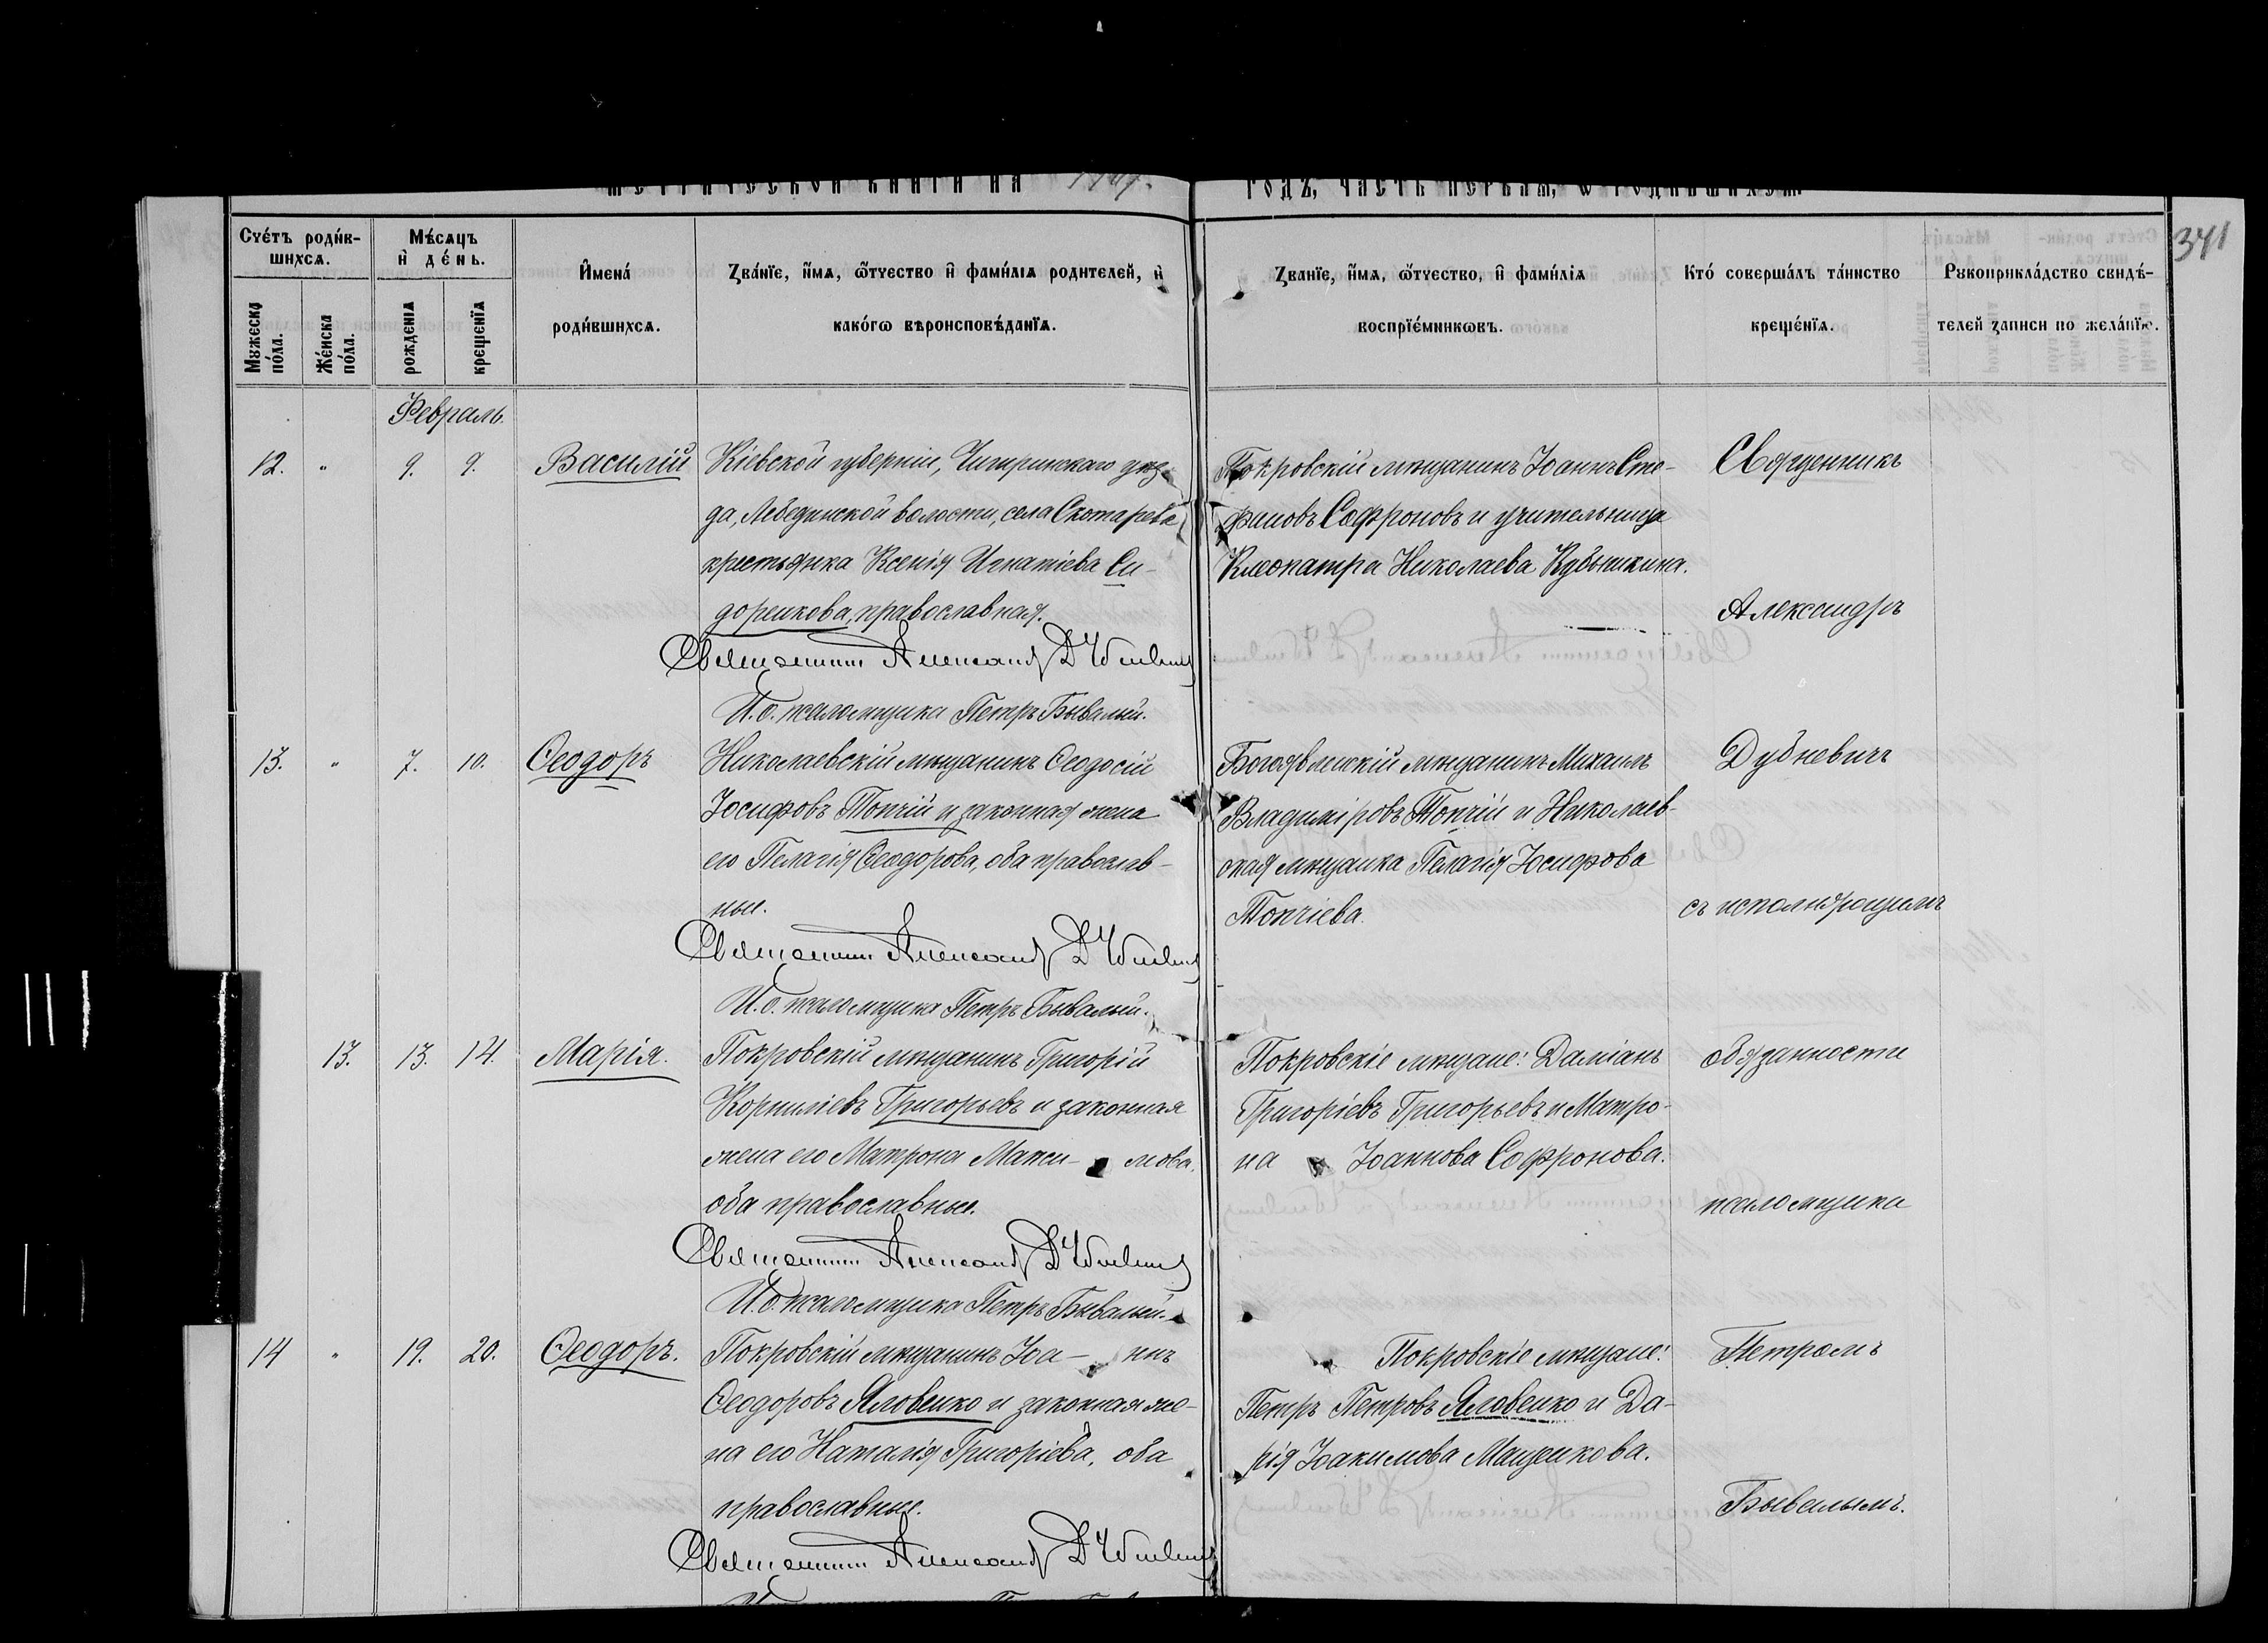 МЕТРИЧЕСКОЙ КНИГИ НА
ГОДЪ, ЧАСТЬ ПЕРВАЯ, Ѡ РОДИВШИХСЯ.
341
Счéтъ роди́в-
шихсѧ.
Мужеска
по́ла.
Же́нска
по́ла.
Мѣ́сѧцъ
и҆ де́нь.
рожденіѧ
крещенїѧ
И҆мена́
роди́вшихсѧ.
Ꙁва́нїе, и҆́мѧ, ѻ҆́тчество и҆ фами́лїѧ родителей, и҆
како́гѡ вѣроисповѣ́данїѧ.
Ꙁванїе, и҆́мѧ, ѻ҆́тчество, и҆ фами́лїѧ
воспрїе́мникѡвъ.
Кто́ соверша́лъ та́инство
креще́нїѧ.
Рукоприкла́дство свидѣ́-
телей ꙁаписи по жела́нїю.
Февраль.
12. " 9. 9. Василій
Кіевской губерніи, Чигиринскаго уѣз-
да, Лебединской волости, села Скотарева
крестьянка Ксенія Игнатіева Си-
доренкова, православная.
Священникъ Александръ Дубневичъ
И. о. псаломщика Петръ Бывалый.
Покровскій мѣщанинъ Іоаннъ Сте-
фановъ Софроновъ и учительница
Клеопатра Николаева Кубышкина.
Священникъ
Александръ
13. " 7. 10. Ѳеодоръ
Николаевскій мѣщанинъ Ѳеодосій
Іосифовъ Топчій и законная жена
его Пелагія Ѳеодорова, оба православ-
ные.
Священникъ Александръ Дубневичъ
И. о. псаломщика Петръ Бывалый.
Богоявленскій мѣщанинъ Михаилъ
Владиміровъ Топчій и Николаев-
ская мѣщанка Пелагія Іосифова
Топчіева.
Дубневичъ
съ исполняющимъ
13. 13. 14. Марія.
Покровскій мѣщанинъ Григорій
Корниліевъ Григорьевъ и законная
жена его Матрона Макси- мова,
оба православные.
Священникъ Александръ Дубневичъ
И. о. псаломщика Петръ Бывалый.
Покровскіе мѣщане: Даміанъ
Григоріевъ Григорьевъ и Матро-
на Іоаннова Софронова.
обязанности
псаломщика
14 " 19. 20. Ѳеодоръ.
Покровскій мѣщанинъ Іоа- ннъ
Ѳеодоровъ Яловенко и законная же-
на его Наталія Григоріева, оба
православные.
Священникъ Александръ Дубневичъ
Покровскіе мѣщане:
Петръ Петровъ Яловенко и Да-
рія Іоакимова Мащенкова.
Петромъ
Бывалымъ.